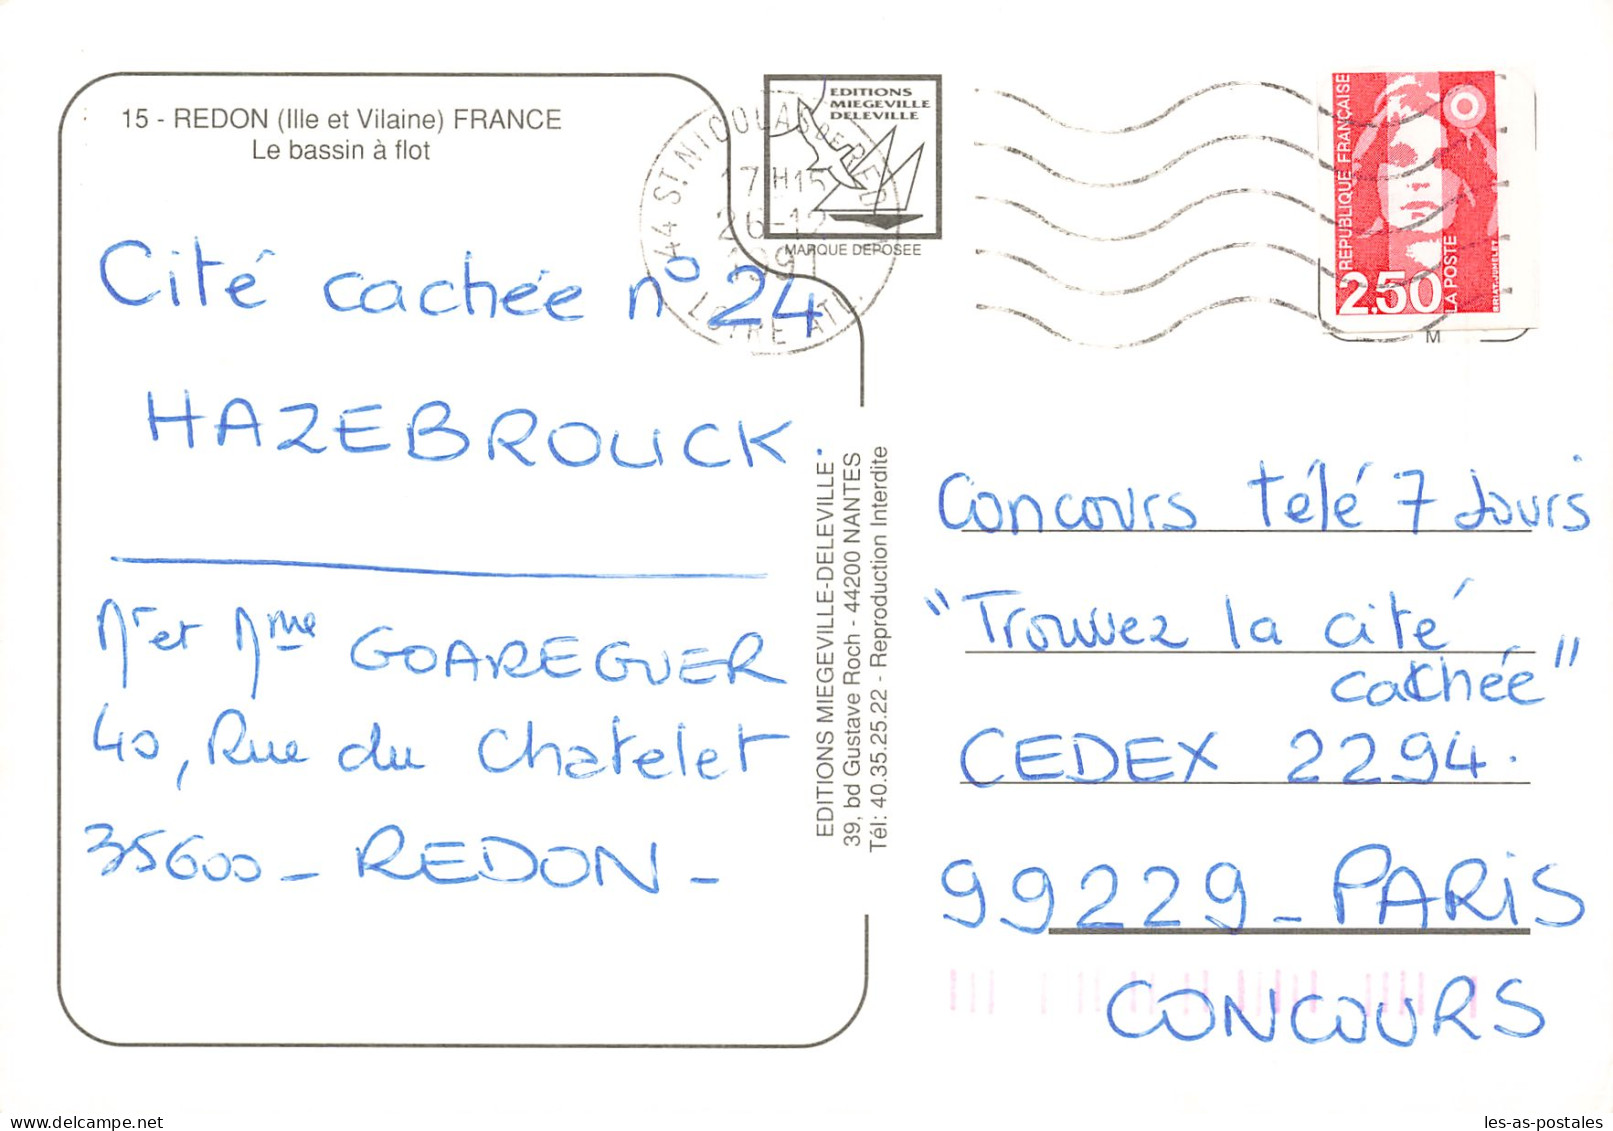 15 - REDON (Ille et Vilaine) FRANCE
Le bassin à flot
EDITIONS
MIEGEVILLE
DELEVILLE
MARQUE DEPOSEE
44 ST NICOLAS DE REDON
17H15
26-12
1991
LOIRE ATL.
REPUBLIQUE FRANÇAISE
2,50
LA POSTE
BRIAT-JUMELET
M
Cité cachée n° 24
HAZEBROUCK
Mr et Mme GOAREGUER
40, Rue du Chatelet
35600 - REDON -
EDITIONS MIEGEVILLE-DELEVILLE
39, bd Gustave Roch - 44200 NANTES
Tél: 40.35.25.22 - Reproduction Interdite
Concours télé 7 Jours
"Trouvez la cité
cachée"
CEDEX 2294.
99229 - PARIS
CONCOURS
les-as-postales